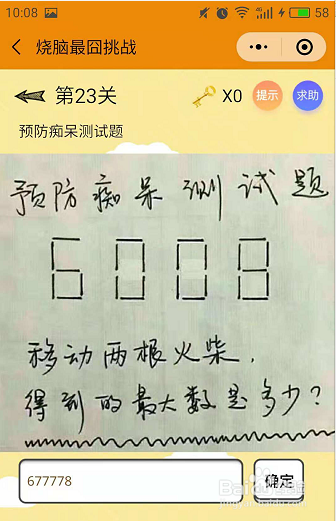 10:08 58
烧脑最囧挑战
第23关 X0 提示 求助
预防痴呆测试题
预防痴呆测试题
6008
移动两根火柴，
得到的最大数是多少？
677778 确定